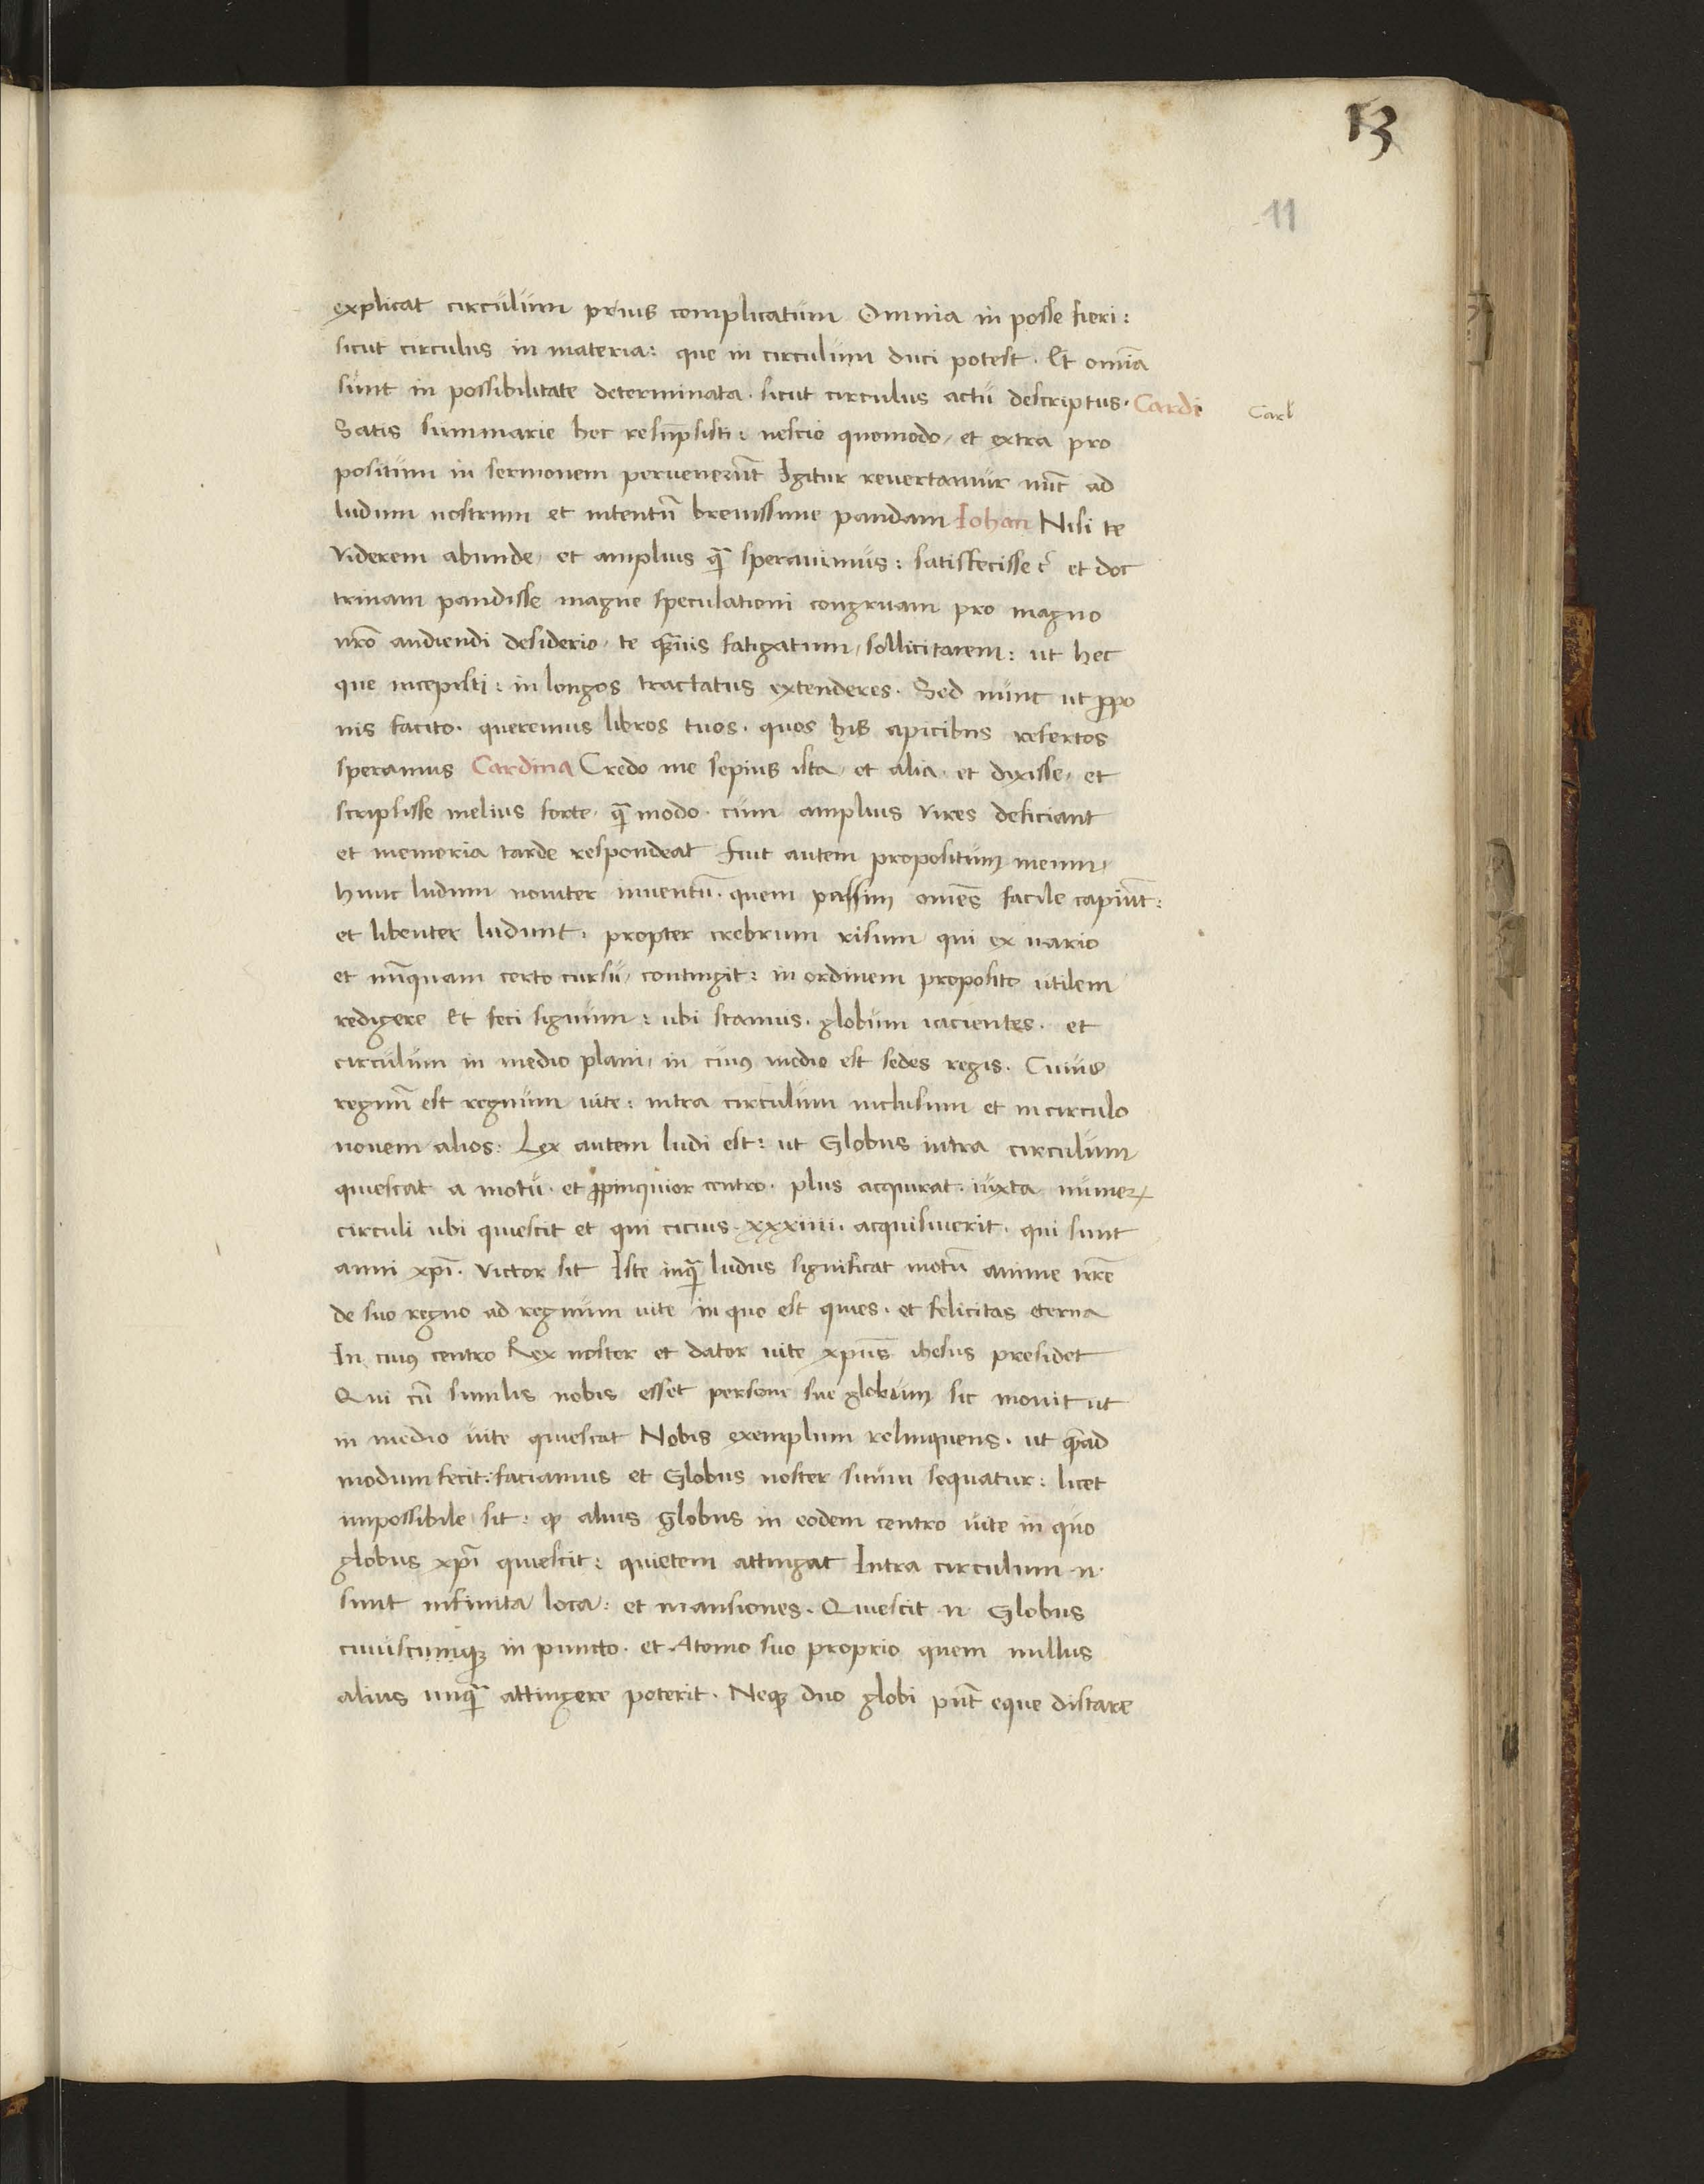 13
11
explicat circulum prius complicatum Omnia in posse fieri:
sicut circulus in materia: que in circulum duci potest. Et om̄ia
sunt in possibilitate determinata. sicut circulus actu descriptus. Cardi
Carl
Satis summarie hec resūpsisti: nescio quomodo, et extra pro
positum in sermonem peruenerūt Igitur reuertamur nūc ad
ludum nostrum et intentū breuissime pandam Iohan Nisi te
viderem abunde, et amplius q̄ sperauimus: satisfecisse et doc
trinam pandisse magne speculationi congruam pro magno
nr̄o audiendi desiderio, te q̄uis fatigatum, sollicitarem: ut hec
que incepisti: in longos tractatus extenderes. Sed nunc ut ꝓpo
nis facito. queremus libros tuos. quos his apicibus refertos
speramus Cardina Credo me sepius ista, et alia, et dixisse, et
scripsisse melius forte, q̄ modo. cum amplius vires deficiant
et memoria tarde respondeat fuit autem propositum meum,
hunc ludum nouiter inuentū. quem passim om̄es facile capiūt:
et libenter ludunt. propter crebrum risum qui ex uario
et nūquam certo cursu, contingit: in ordinem proposito utilem
redigere Et feci signum: ubi stamus. globum iacientes. et
circulum in medio plani, in cuiꝰ medio est sedes regis. Cuius
regnū est regnum uite: intra circulum inclusum et in circulo
nouem alios: Lex autem ludi est: ut Globus intra circulum
quiescat a motu. et ꝓpinquior centro. plus acquirat. iuxta numeꝝ
circuli ubi quiescit et qui cicius. xxxiiii. acquisiuerit. qui sunt
anni xp̄i. victor sit Iste inq̄ ludus significat motū anime nr̄e
de suo regno ad regnum uite in quo est quies. et felicitas eterna
In cuiꝰ centro Rex noster et dator uite xp̄us ihesus presidet
Qui cū similis nobis esset persone sue globum sic mouit ut
in medio uite quiescat Nobis exemplum relinquens. ut q̄ad
modum fecit: faciamus et Globus noster suum sequatur: licet
impossibile sit: ꝙ alius globus in eodem centro uite in quo
globus xp̄i quiescit: quietem attingat Intra circulum .n.
sunt infinita loca: et mansiones. Quiescit .n. Globus
cuiuscunqꝫ in puncto. et Atomo suo proprio quem nullus
alius unq̄ attingere poterit. Neqꝫ duo globi pn̄t eque distare